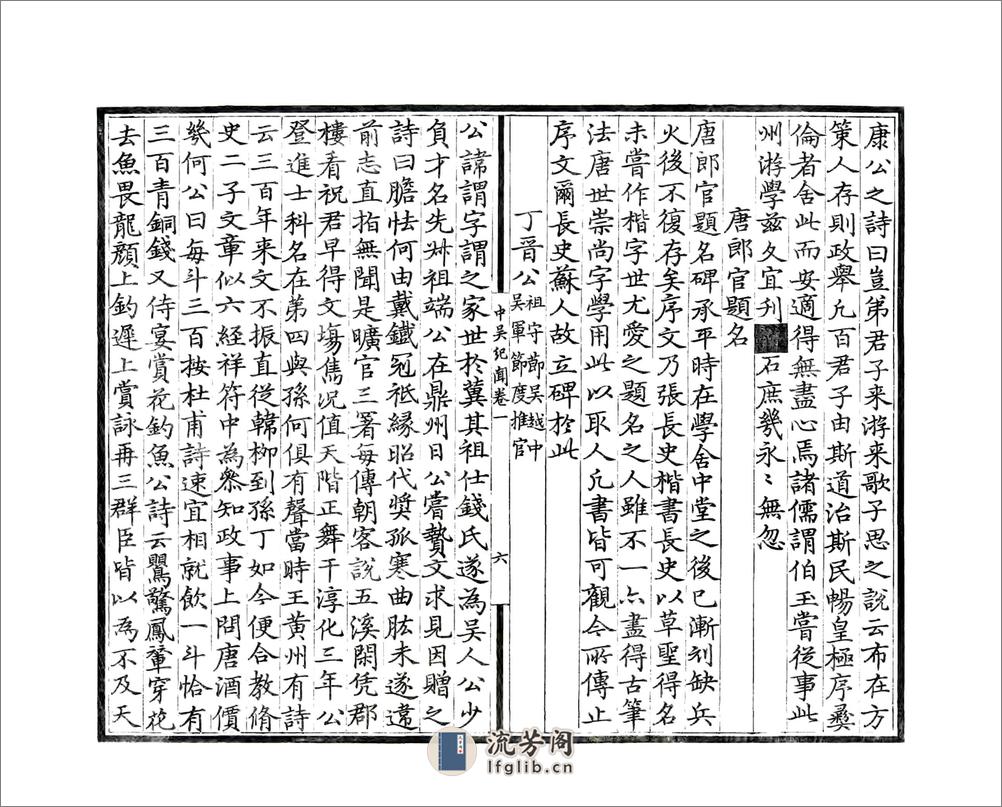 康公之詩曰豈弟君子来游来歌子思之說云布在方
策人存則政舉凢百君子由斯道治斯民暢皇極序彝
倫者舍此而安適得無盡心焉諸儒謂伯玉嘗從事此
州游學兹文宜刋石庶幾永〻無忽
唐郎官題名
唐郎官題名碑承平時在學舍中堂之後已漸刓缺兵
火後不復存矣序文乃張長史楷書長史以草聖得名
未嘗作楷字世尤愛之題名之人雖不一亦盡得古筆
法唐世崇尚字學用此以取人凢書皆可觀今所傳止
序文爾長史蘇人故立碑於此
丁晉公祖守節吳越中
吳軍節度推官
中吳紀聞卷一
六
公諱謂字謂之家世於冀其祖仕錢氏遂為吳人公少
負才名先叅祖端公在鼎州日公嘗贄文求見因贈之
詩曰膽怯何由戴鐵冠祗縁昭代奬孤寒曲肱未遂違
前志直指無聞是曠官三署每傳朝客說五溪閑凭郡
樓看祝君早得文塲雋况值天階正舞干淳化三年公
登進士科名在第四與孫何俱有聲當時王黄州有詩
云三百年来文不振直從韓柳到孫丁如今便合教脩
史二子文章似六經祥符中為叅知政事上問唐酒價
幾何公曰每斗三百按杜甫詩速宜相就飲一斗恰有
三百青銅錢又侍宴賞花釣魚公詩云鸎驚鳳輦穿花
去魚畏龍顔上釣遲上賞詠再三群臣皆以為不及天
流芳阁
lfglib.cn